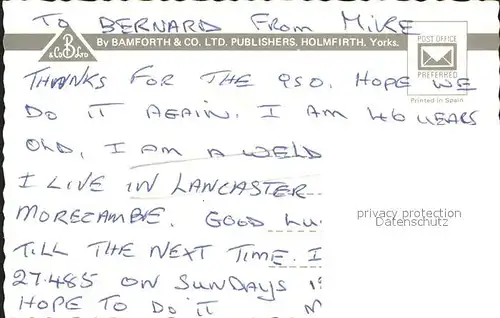 TO BERNARD FROM MIKE
B
& Co LTD
By BAMFORTH & CO. LTD. PUBLISHERS, HOLMFIRTH, Yorks.
POST OFFICE
PREFERRED
Printed in Spain
THANKS FOR THE QSO. HOPE WE
DO IT AGAIN. I AM 46 YEARS
OLD, I AM A WELD
I LIVE IN LANCASTER
MORECAMBE. GOOD LU
privacy protection
Datenschutz
TILL THE NEXT TIME. I
27.485 ON SUNDAYS
HOPE TO DO IT